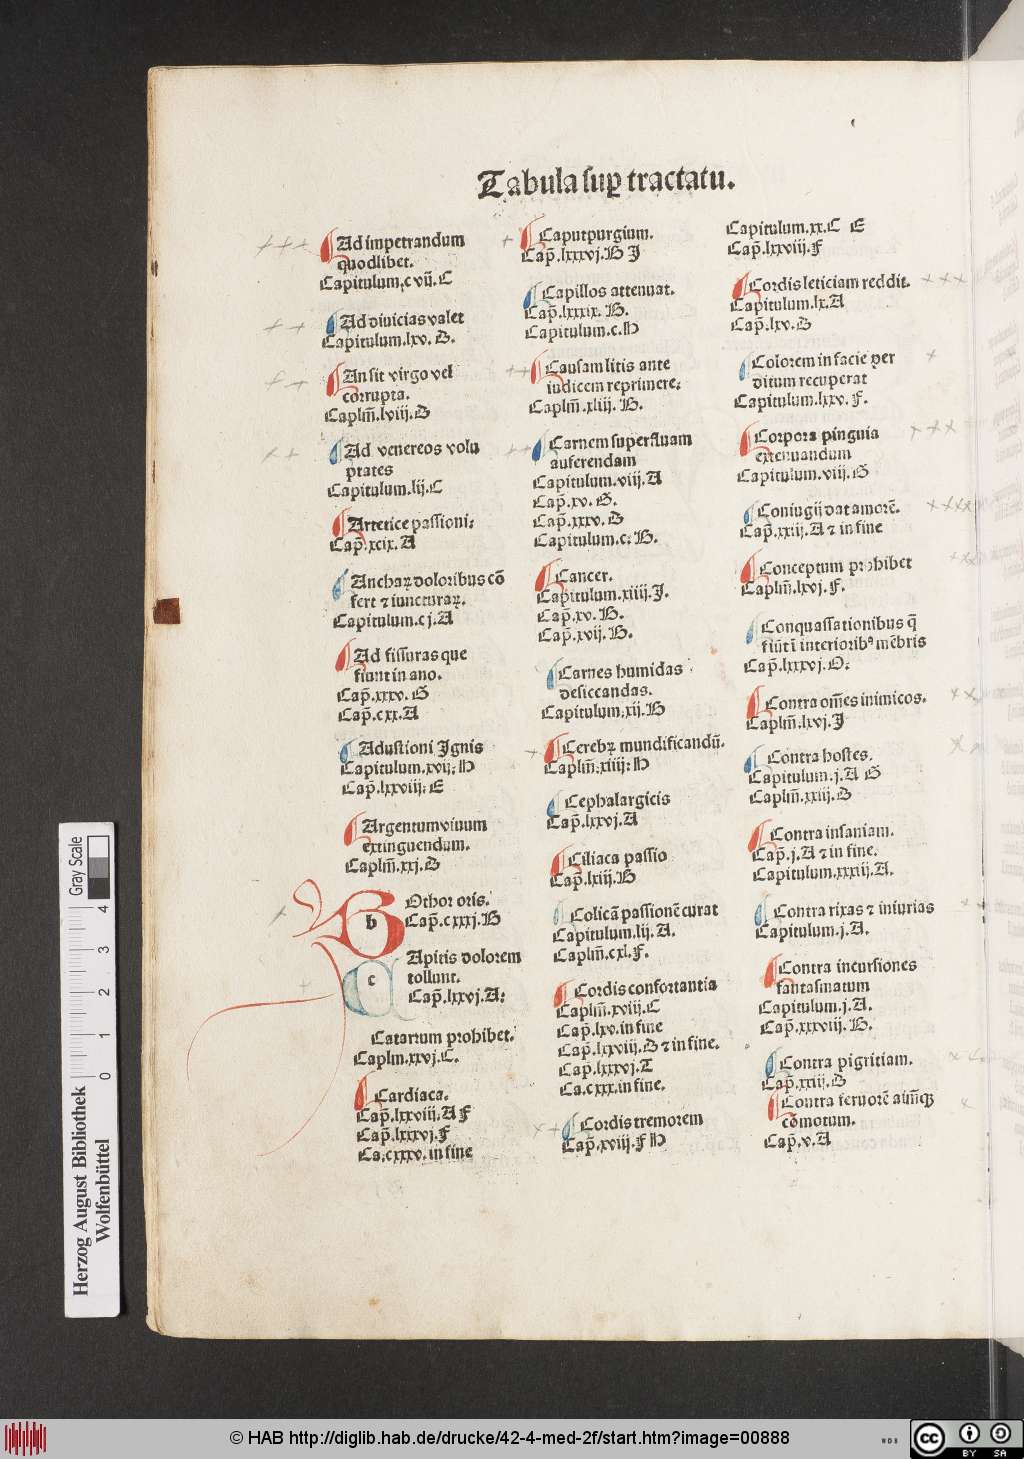 Tabula suꝑ tractatu.
Ad impetrandum
quodlibet.
Capitulum.c vij. C
Ad diuicias valet
Capitulum.lxv. D.
An sit virgo vel
corrupta.
Caplm̃.lviij.D
Ad venereos volu
ptates
Capitulum.lij.C
Artetice passioni:
Cap̃.xcix.A
Anchaꝝ doloribus cō
fert ⁊ iuncturaꝝ.
Capitulum.cj.A
Ad fissuras que
fiunt in ano.
Cap̃.xxxv.G
Cap̃.cxx.A
Adustioni Ignis
Capitulum.xvij:H
Cap̃.lxxviij:E
Argentum viuum
extinguendum.
Caplm̃.xxj.D
B
b
Othor oris.
Cap̃.cxxxj.B
C
c
Apitis dolorem
tollunt.
Cap̃.lxxvj.A:
Catarrum prohibet.
Caplm.xxvj.C.
Cardiaca.
Cap̃.lxxviij.A F
Cap̃.lxxxvj.F
Ca.cxxxv.in fine
Caputpurgium.
Cap̃.lxxxvj.B I
Capillos attenuat.
Cap̃.lxxxix.B.
Capitulum.c.H
Causam litis ante
iudicem reprimere:
Caplm̃.xliij.B.
Carnem superfluam
auferendam
Capitulum.viij.A
Cap̃.xv.G.
Cap̃.xxxv.D
Capitulum.c:B.
Cancer.
Capitulum.xiiij.I.
Cap̃.xv.B.
Cap̃.xvij.B.
Carnes humidas
desiccandas.
Capitulum.xij.B
Cerebꝝ mundificandū.
Caplm̃:xiiij:H
Cephalargicis
Cap̃.lxxvj.A
Ciliaca passio
Cap̃.lxiij.B
Colicā passionē curat
Capitulum.lij.A.
Caplm̃.cxl.F.
Cordis confortantia
Caplm̃.xviij.C
Cap̃.lxv.in fine
Cap̃.lxxviij.D ⁊ in fine.
Cap̃.lxxxvj.T
Ca.cxxx.in fine.
Cordis tremorem
Cap̃.xviij.F H
Capitulum.xx.C E
Cap̃.lxxviij.F
Cordis leticiam reddit.
Capitulum.lx.A
Cap̃.lxv.D
Colorem in facie ꝑer
ditum recuperat
Capitulum.lxxv.F.
Corpora pinguia
extenuandum
Capitulum.viij.G
Coniugij dat amorē.
Cap̃.xxiij.A ⁊ in fine
Conceptum prohibet
Caplm̃.lxvj.F.
Conquassationibus q̄
fiūt ī interiorib⁹ mēbris
Cap̃.lxxxvj.O:
Contra om̄es inimicos.
Caplm̃.lxvj.I
Contra hostes.
Capitulum.j.A G
Caplm̃.xxiij.D
Contra insaniam.
Cap̃.j.A ⁊ in fine.
Capitulum.xxxiij.A.
Contra rixas ⁊ iniurias
Capitulum.j.A.
Contra incursiones
fantasmatum
Capitulum.j.A.
Cap̃.xxxviij.B.
Contra pigritiam.
Cap̃.xxiij.D
Contra feruorē alĩmq̃
cōmotum.
Cap̃.v.A
Herzog August Bibliothek
Wolfenbüttel
Gray Scale
0 1 2 3 4
© HAB http://diglib.hab.de/drucke/42-4-med-2f/start.htm?image=00888
WDB
cc
BY SA